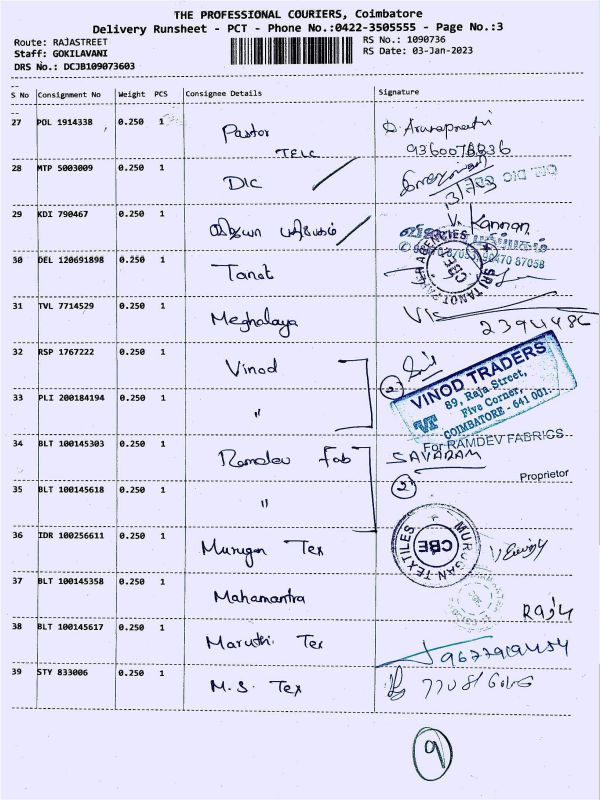 THE PROFESSIONAL COURIERS, Coimbatore
Delivery Runsheet - PCT - Phone No.:0422-3505555 - Page No.:3
Route: RAJASTREET
RS No.: 1090736
Staff: GOKILAVANI
RS Date: 03-Jan-2023
DRS No.: DCJB109073603
S No Consignment No Weight PCS Consignee Details Signature
27 POL 1914338 0.250 1 Pastor
TELC
9360078836
28 MTP 5003009 0.250 1 DIC
29 KDI 790467 0.250 1 V. Kannan
30 DEL 120691898 0.250 1 Tanot
CBE
31 TVL 7714529 0.250 1 Meghalaya
2394486
32 RSP 1767222 0.250 1 Vinod
33 PLI 200184194 0.250 1 "
2
VINOD TRADERS
89, Raja Street,
Five Corner,
COIMBATORE - 641 001.
For RAMDEV FABRICS
34 BLT 100145303 0.250 1 Ramdev Fab SAVARAM
Proprietor
35 BLT 100145618 0.250 1 " 2
36 IDR 100256611 0.250 1 Murugan Tex
MURUGAN TEXTILES
CBE
37 BLT 100145358 0.250 1 Mahamantra
Raju
38 BLT 100145617 0.250 1 Maruthi Tex
39 STY 833006 0.250 1 M.S. Tex
9